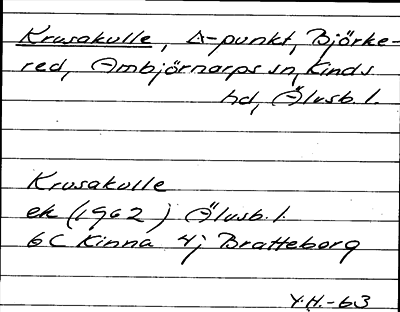 Krusakulle, Δ-punkt, Björke-
red, Ambjörnarps sn, Kinds
hd, Älvsb. l.
Krusakulle
ek (1962) Älvsb. l.
6C Kinna 4j Bratteborg
Y.H.-63